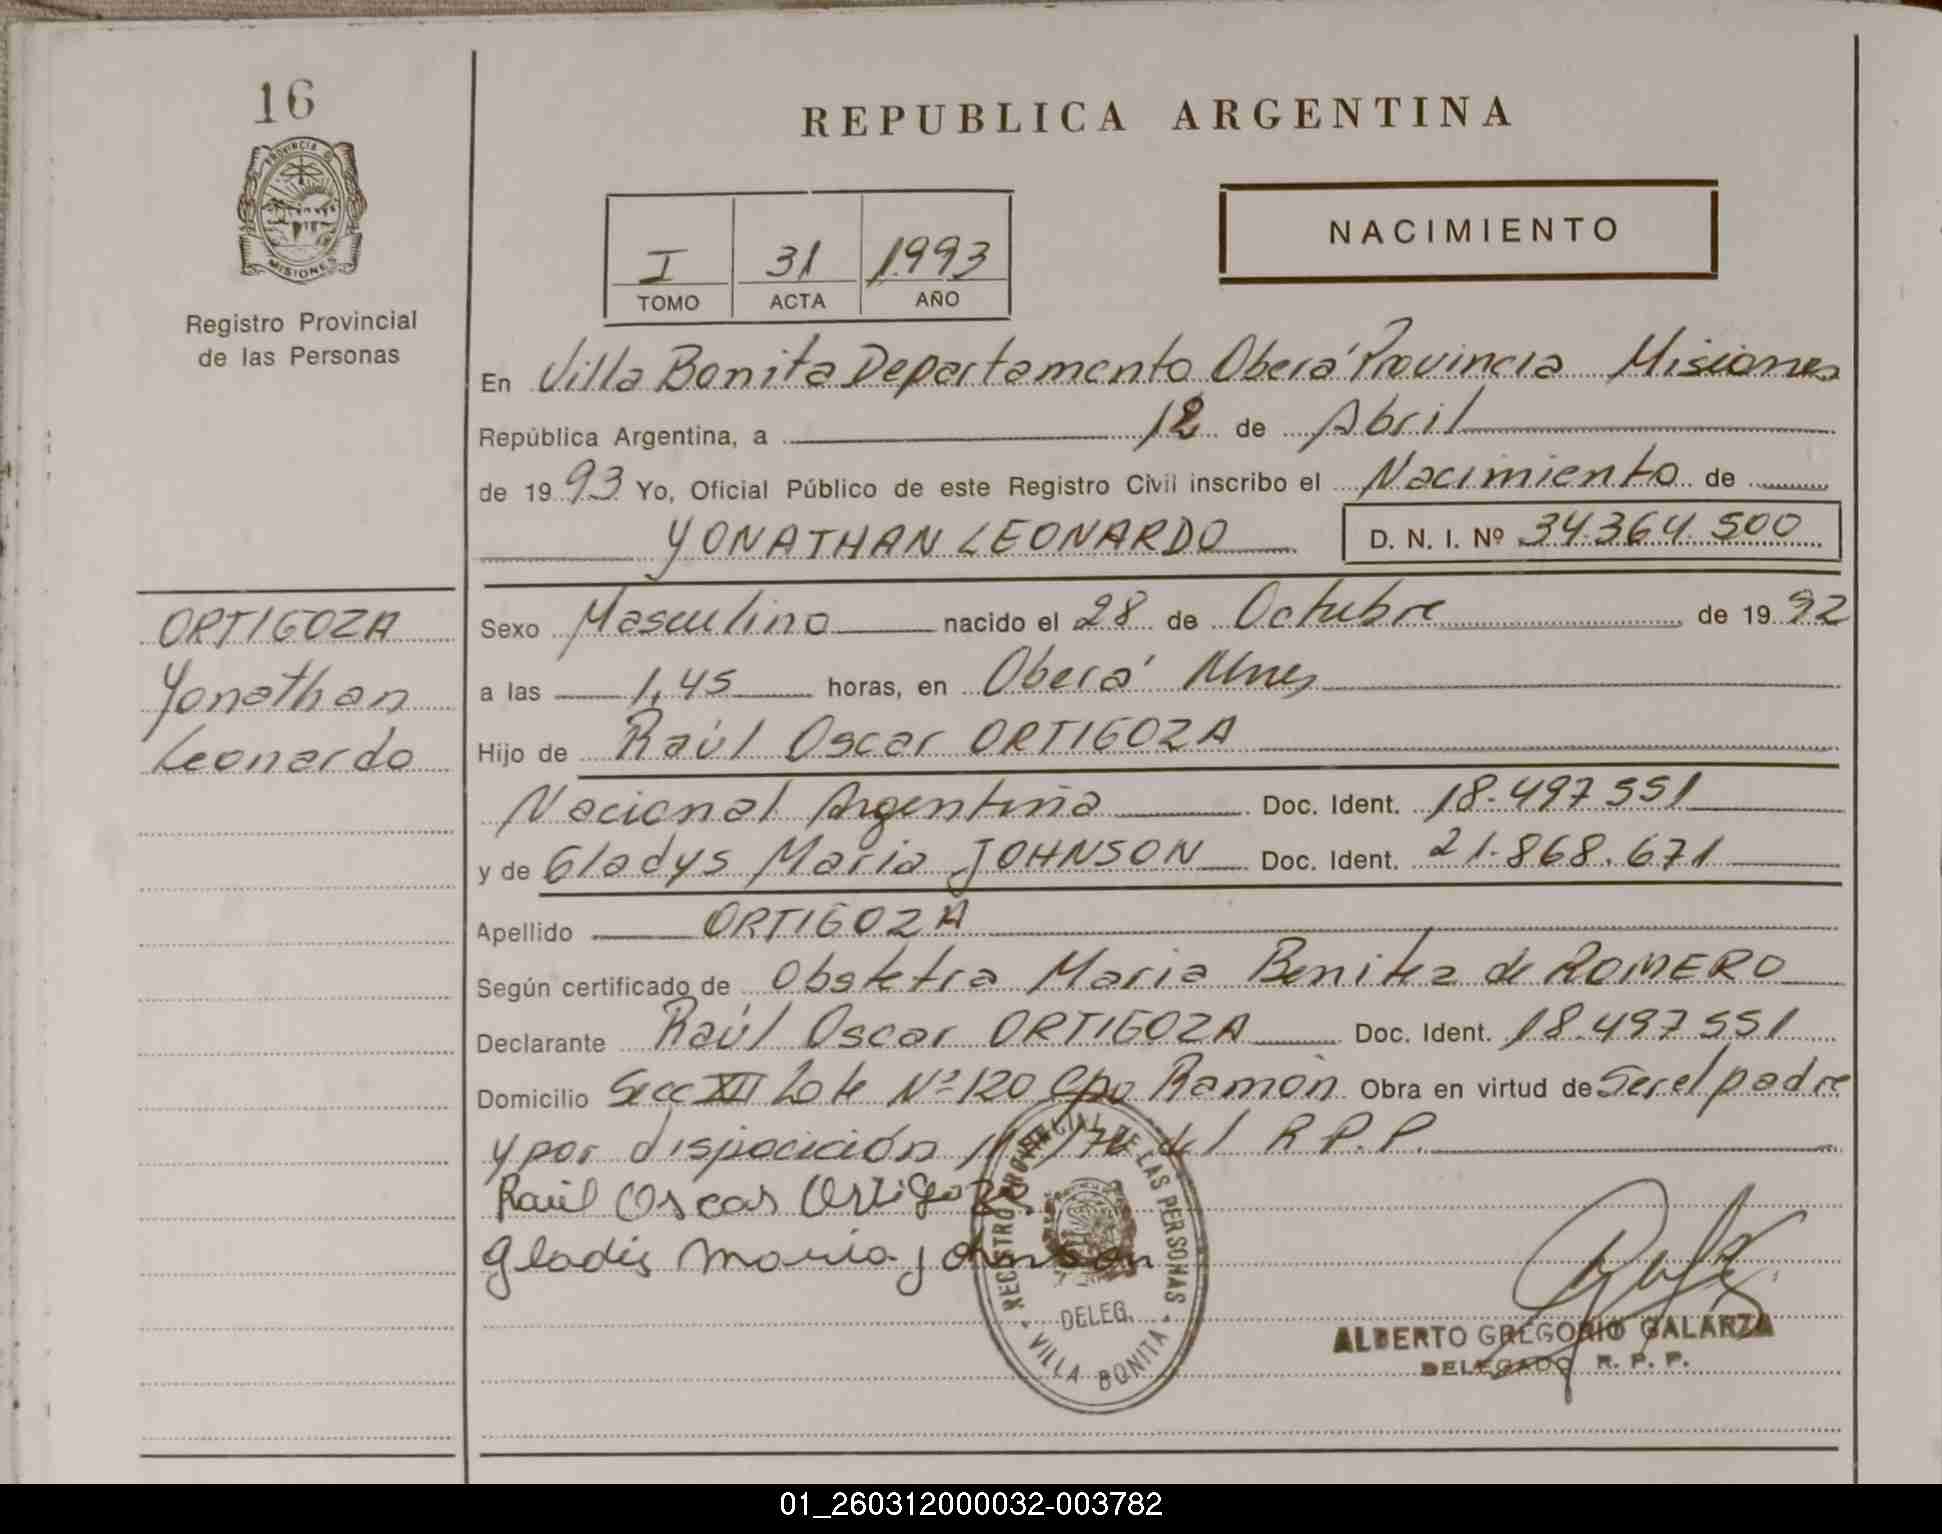 16
PROVINCIA DE
MISIONES
Registro Provincial
de las Personas
REPUBLICA ARGENTINA
NACIMIENTO
I 31 1993
TOMO ACTA AÑO
En Villa Bonita Departamento Oberá Provincia Misiones
República Argentina, a 12 de Abril
de 1993 Yo, Oficial Público de este Registro Civil inscribo el Nacimiento de
YONATHAN LEONARDO D. N. I. Nº 34.364.500
ORTIGOZA
Yonathan
Leonardo
Sexo Masculino nacido el 28 de Octubre de 1992
a las 1,45 horas, en Oberá Mnes
Hijo de Raúl Oscar ORTIGOZA
Nacional Argentina Doc. Ident. 18.497551
y de Gladys Maria JOHNSON Doc. Ident. 21.868.671
Apellido ORTIGOZA
Según certificado de Obstetra Maria Benitez de ROMERO
Declarante Raúl Oscar ORTIGOZA Doc. Ident. 18.497551
Domicilio Secc XII Lote Nº 120 Cpo Ramón Obra en virtud de Ser el padre
y por disposición del R.P.P.
Raúl Oscar Ortigoza
Gladis Maria Johnson
REGISTRO PROVINCIAL DE LAS PERSONAS
DELEG.
VILLA BONITA
ALBERTO GREGORIO GALARZA
DELEGADO R. P. P.
01_260312000032-003782